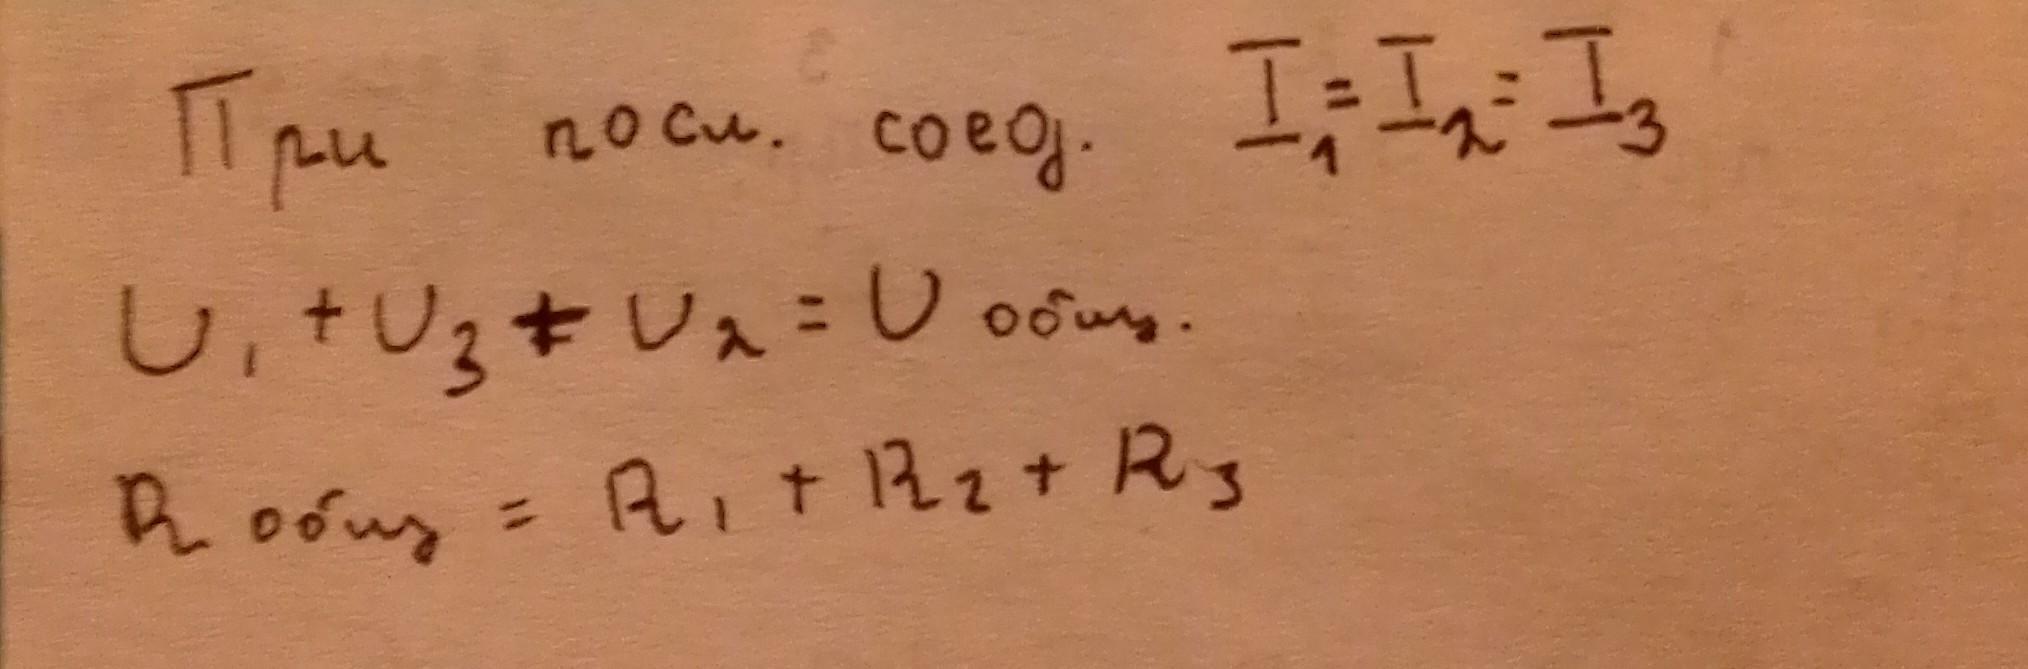 При посл. соед. I₁=I₂=I₃
U₁+U₃+U₂=U общ.
R общ = R₁+R₂+R₃